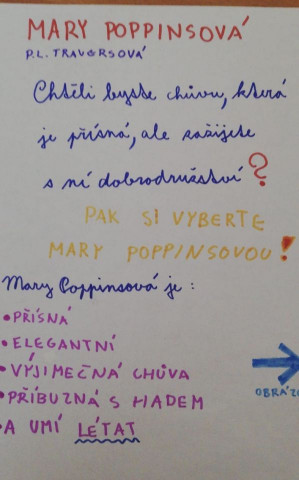 MARY POPPINSOVÁ
P.L. TRAVERSOVÁ
Chtěli byste chůvu, která
je přísná, ale zažijete
s ní dobrodružství?
PAK SI VYBERTE
MARY POPPINSOVOU!
Mary Poppinsová je:
•PŘÍSNÁ
•ELEGANTNÍ
•VÝJIMEČNÁ CHŮVA
•PŘÍBUZNÁ S HADEM
•A UMÍ LÉTAT